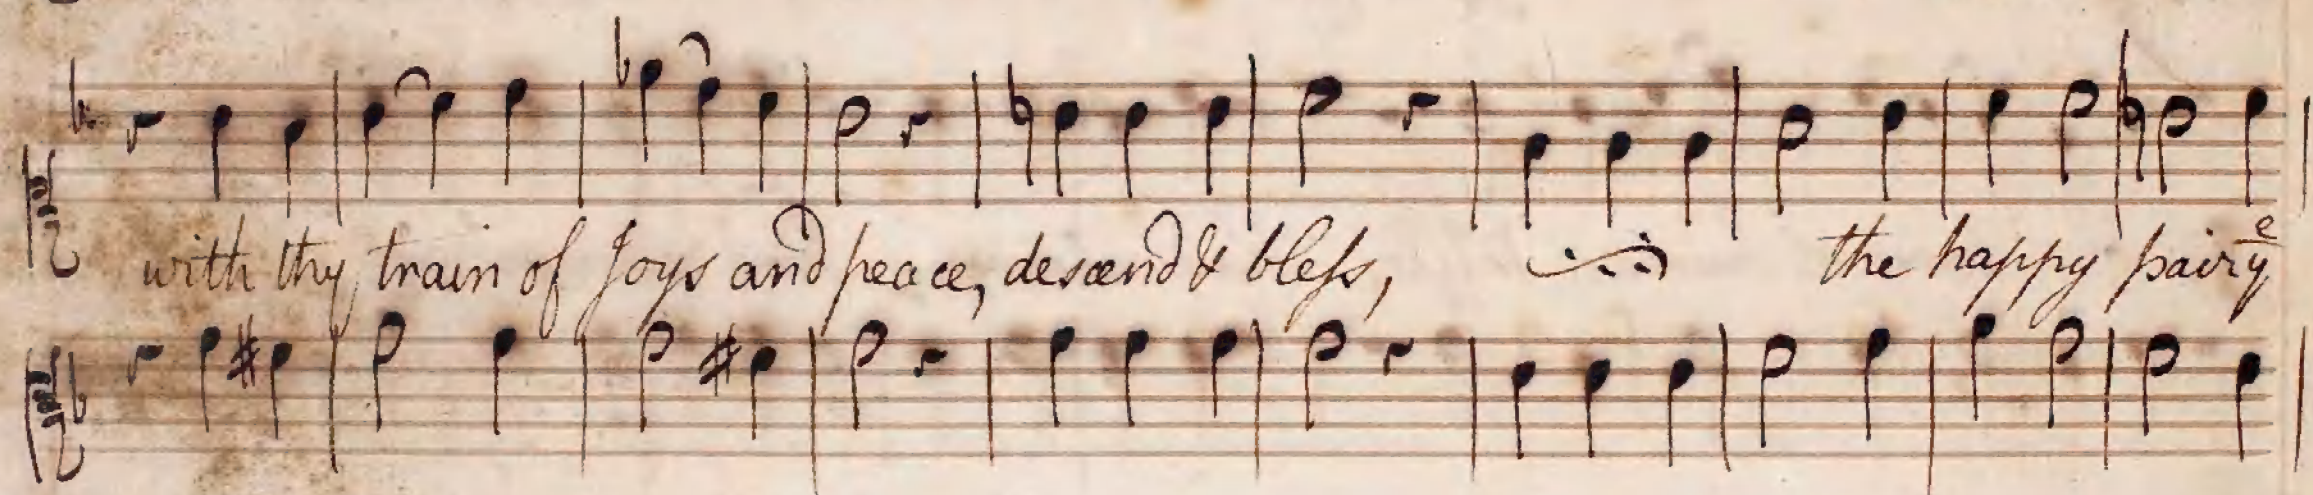 with thy train of Joys and peace, descend & bless, the happy pair yᵉ